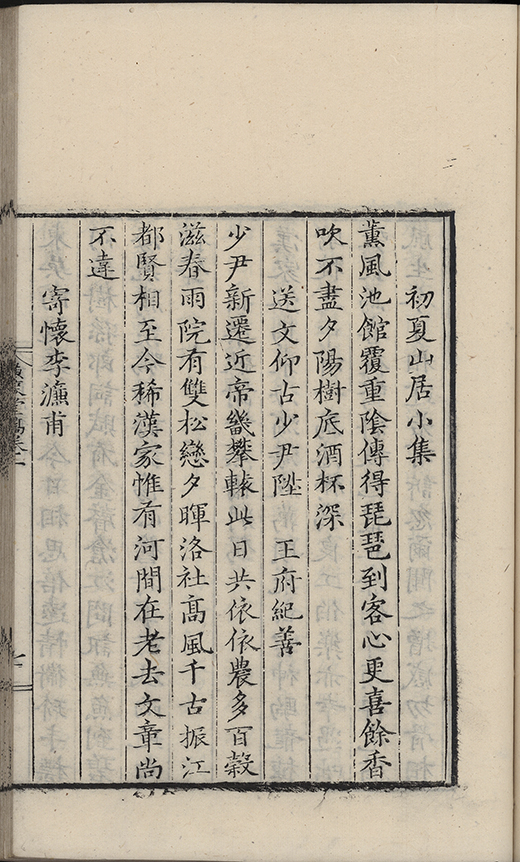 初夏山居小集
薰風池館覆重陰傳得琵琶到客心更喜餘香
吹不盡夕陽樹底酒杯深
送文仰古少尹陞　王府紀善
少尹新遷近帝畿攀轅此日共依依農多百榖
滋春雨院有雙松戀夕暉洛社髙風千古振江
都賢相至今稀漢家惟有河間在老去文章尚
不違
寄懷李濂甫